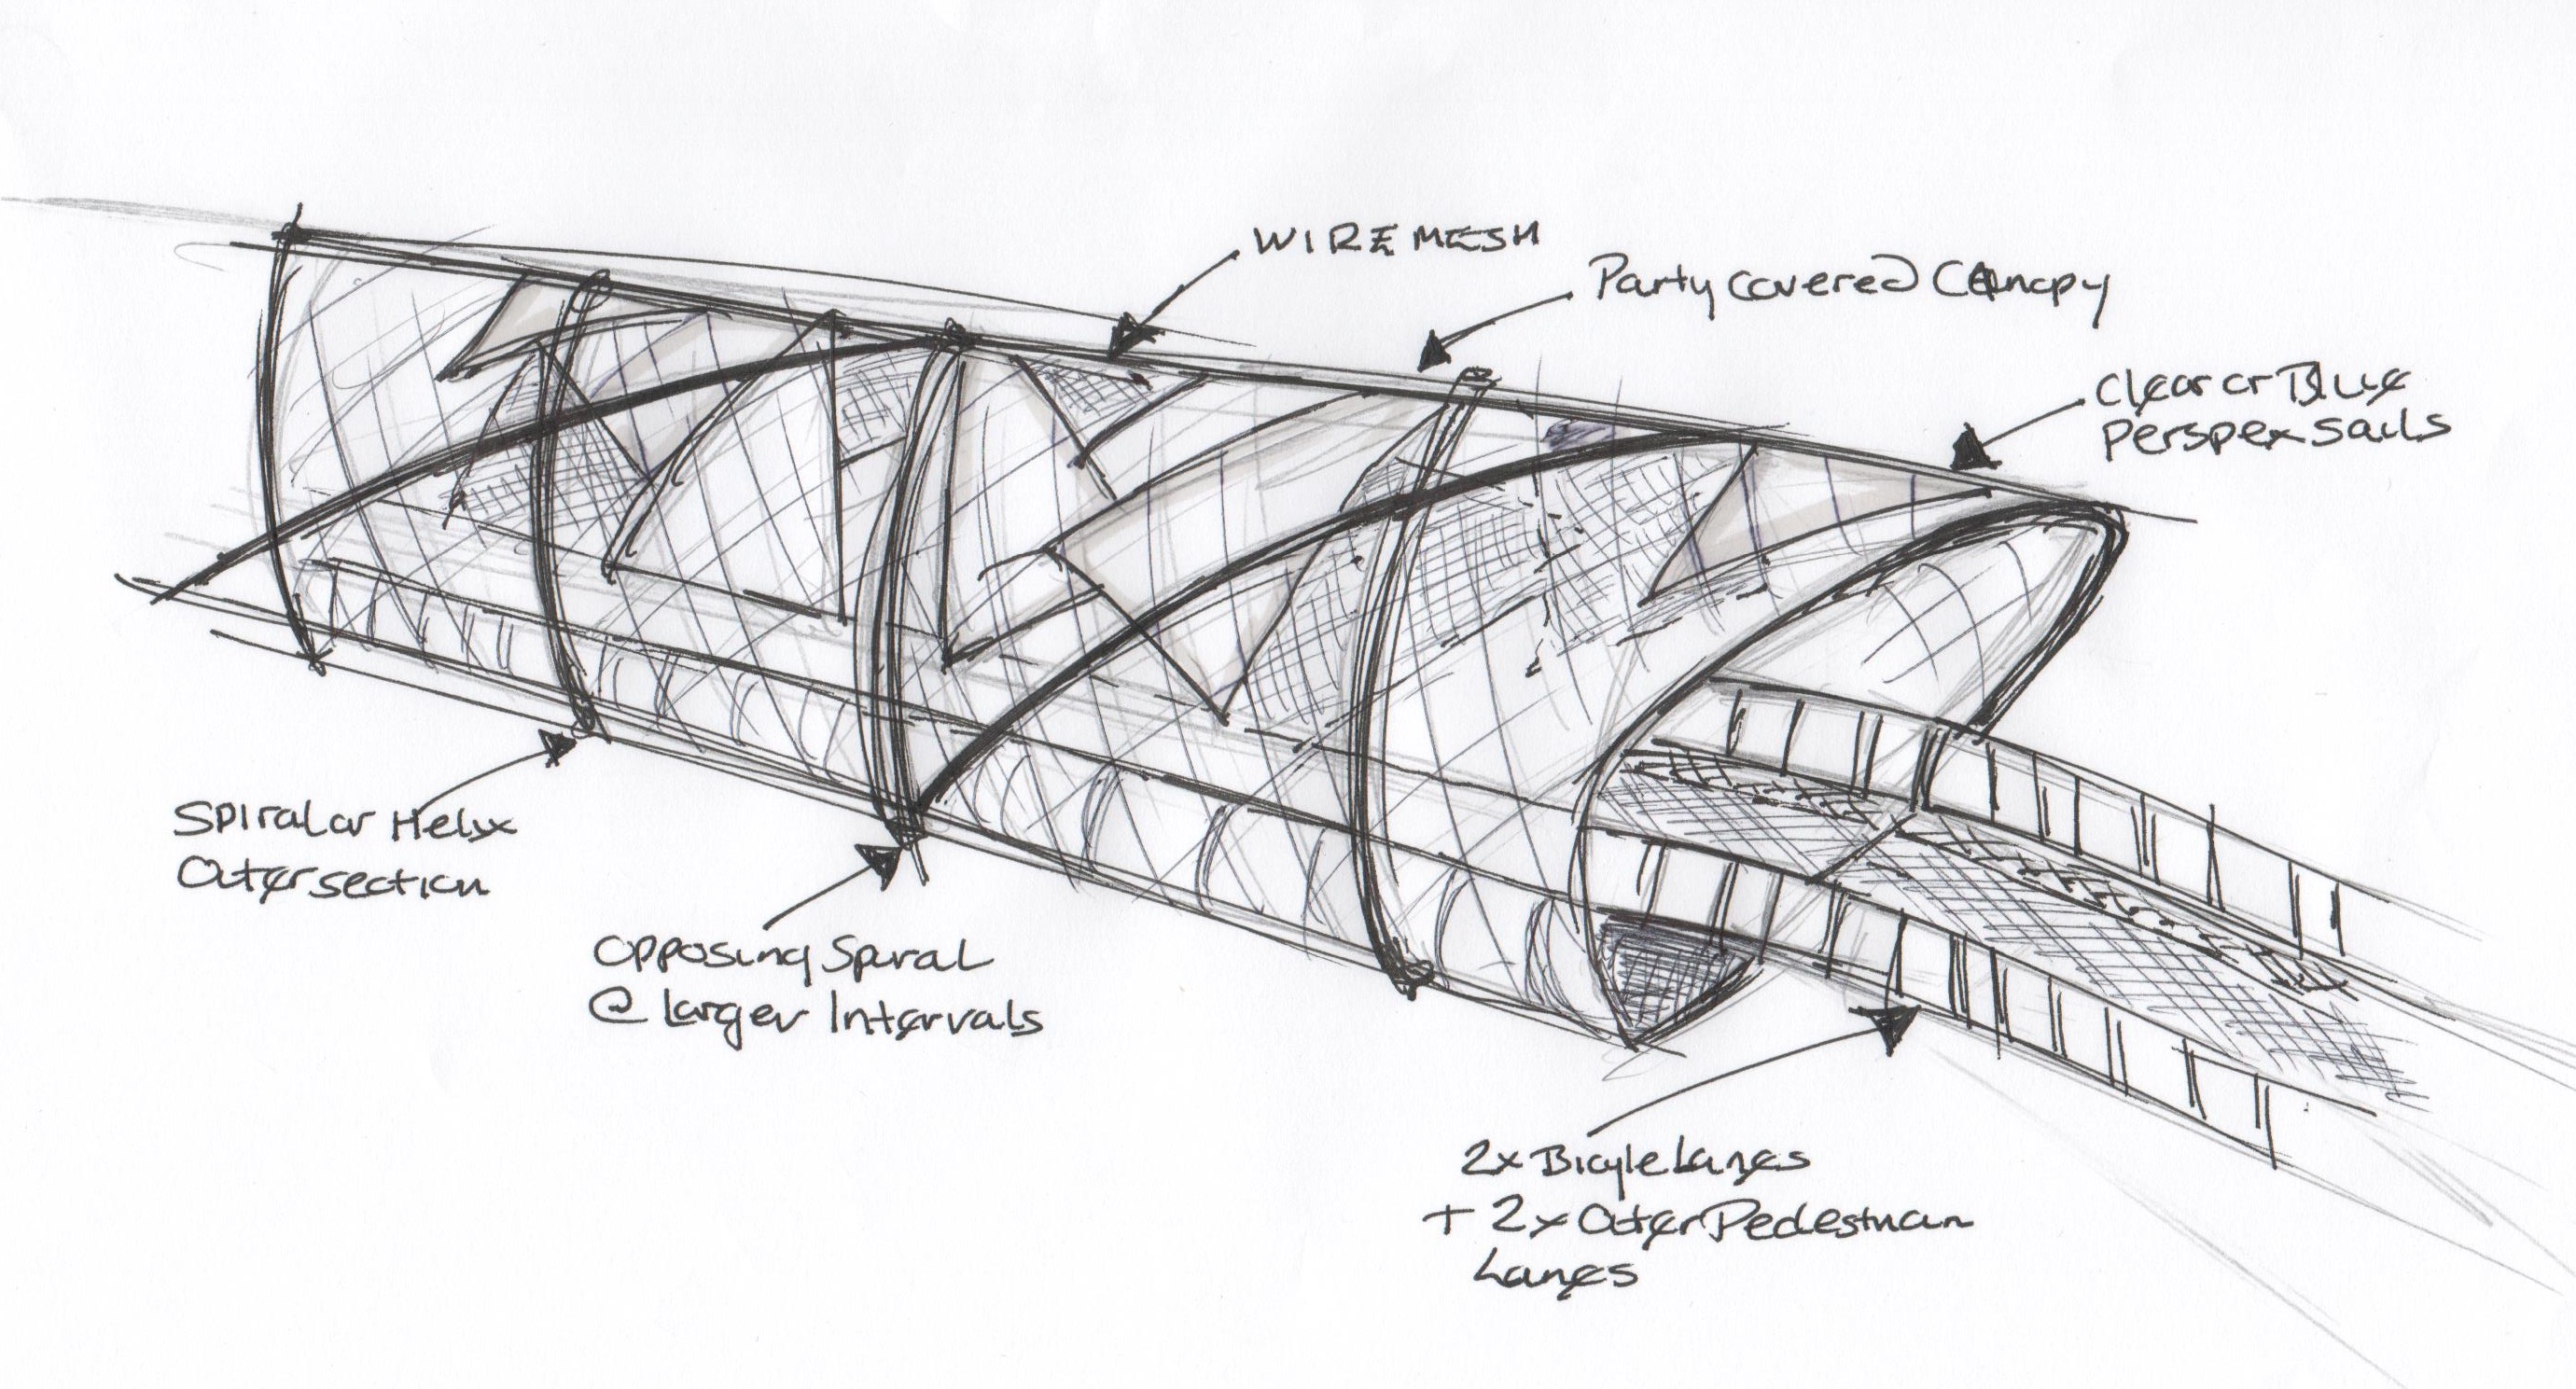 WIRE MESH
Party covered Canopy
Clear or Blue
Perspex Sails
Spiral or Helix
Outer section
Opposing Spiral
@ Larger Intervals
2x Bicyle Lanes
+ 2x Outer Pedestrian
Lanes